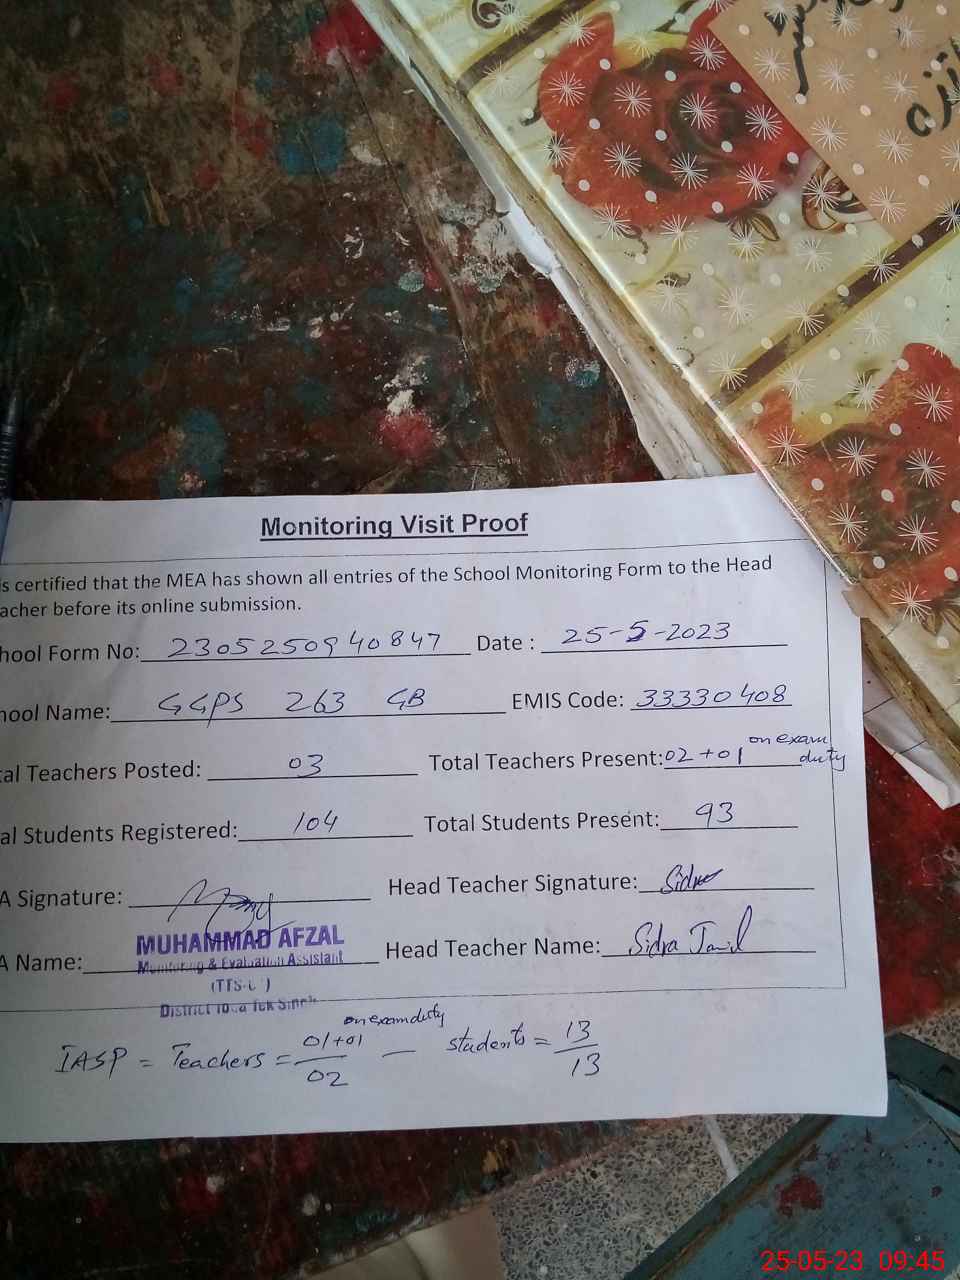 Monitoring Visit Proof
is certified that the MEA has shown all entries of the School Monitoring Form to the Head
acher before its online submission.
hool Form No: 2305250940847 Date : 25-5-2023
hool Name: GGPS 263 GB EMIS Code: 33330408
al Teachers Posted: 03 Total Teachers Present: 02+01 on exam duty
al Students Registered: 104 Total Students Present: 93
A Signature: Head Teacher Signature: Sidra
A Name: MUHAMMAD AFZAL Head Teacher Name: Sidra Jamil
Monitoring & Evaluation Assistant
District Toba Tek Singh
IASP = Teachers = 01+01 on exam duty / 02 — students = 13 / 13
25-05-23 09:45